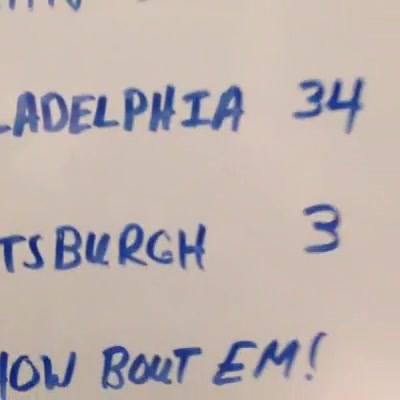 LADELPHIA 34
TSBURGH 3
HOW BOUT EM!